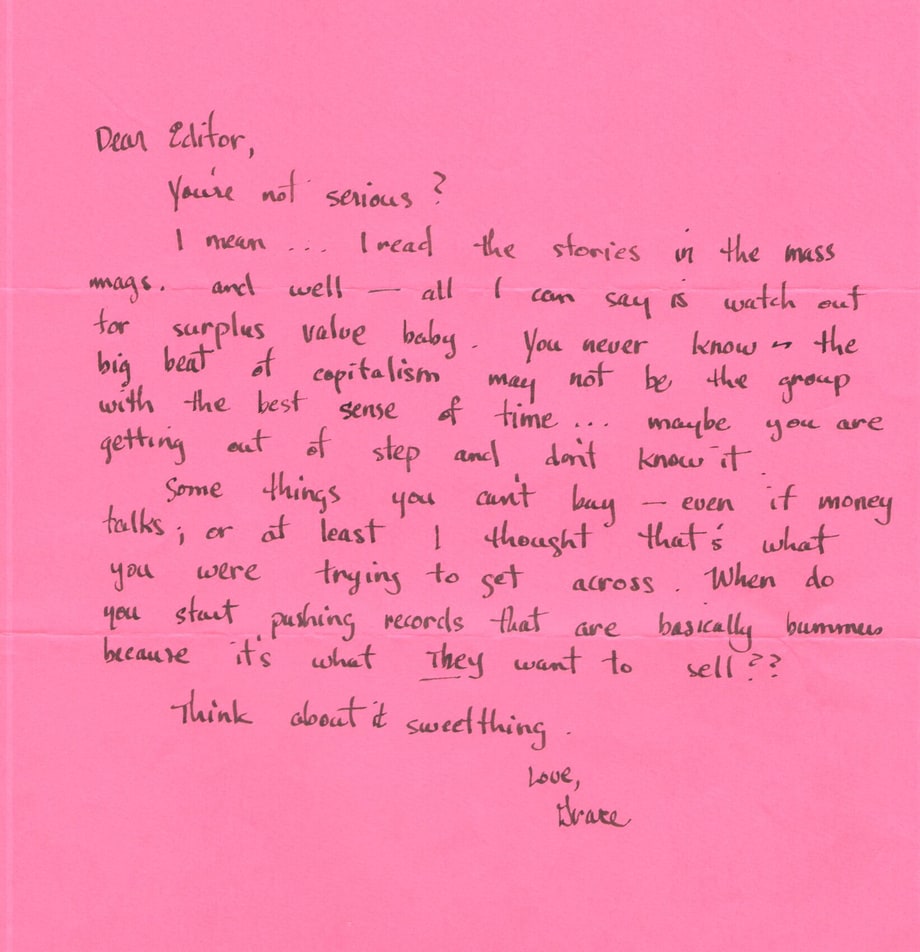 Dear Editor,
You're not serious?
I mean ... I read the stories in the mass
mags. and well — all I can say is watch out
for surplus value baby. You never know ~ the
big beat of capitalism may not be the group
with the best sense of time ... maybe you are
getting out of step and don't know it.
Some things you can't buy — even if money
talks; or at least I thought that's what
you were trying to get across. When do
you start pushing records that are basically bummers
because it's what They want to sell??
Think about it sweetthing.
Love,